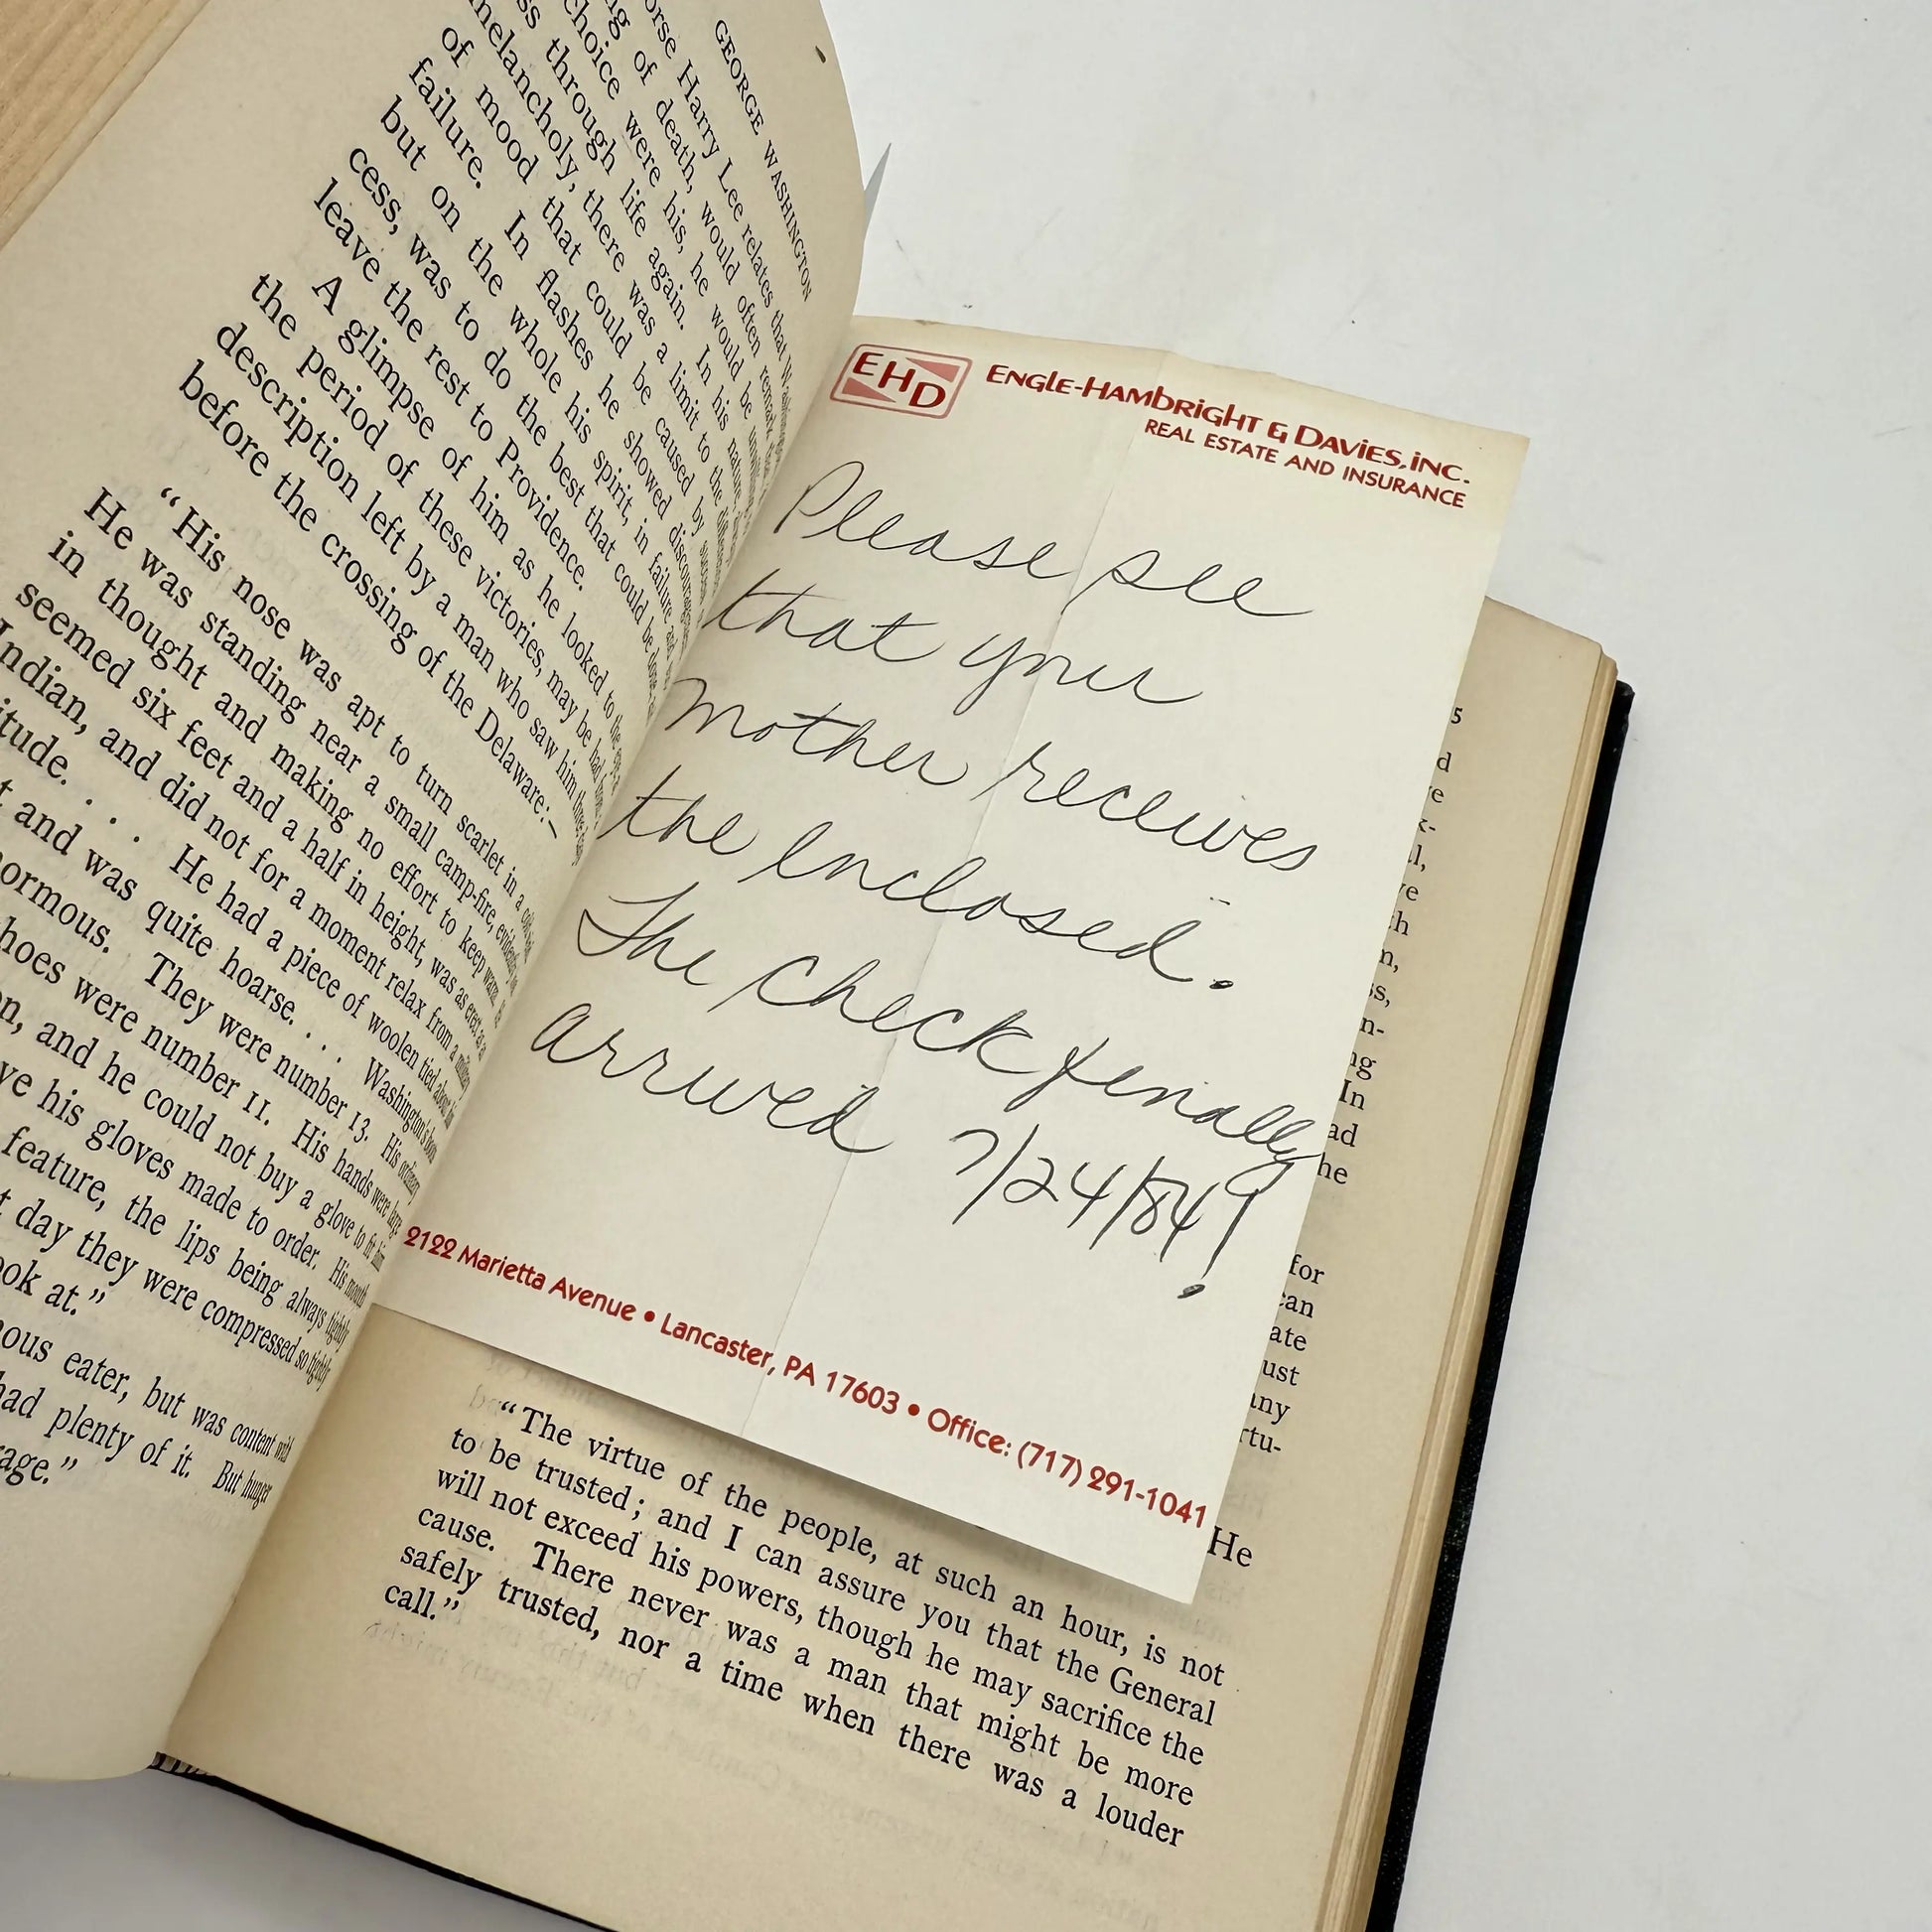 GEORGE WASHINGTON
orse Harry Lee relates that
ng of death, would often remark
choice were his, he would be
ss through life again. In his nature
melancholy, there was a limit to the
of mood that could be caused by
failure. In flashes he showed
but on the whole his spirit, in failure
cess, was to do the best that could be
leave the rest to Providence.
A glimpse of him as he looked to the
the period of these victories, may be had
description left by a man who saw him
before the crossing of the Delaware:—
“His nose was apt to turn scarlet in a
He was standing near a small camp-fire,
in thought and making no effort to keep warm.
seemed six feet and a half in height, was as erect as
Indian, and did not for a moment relax from a
itude. . . . He had a piece of woolen tied about
t and was quite hoarse. . . . Washington's
ormous. They were number 13. His ordinary
hoes were number 11. His hands were large
on, and he could not buy a glove to fit him
ve his gloves made to order. His mouth
feature, the lips being always tightly
t day they were compressed so tightly
ook at.”
nous eater, but was content with
had plenty of it. But hunger
age.”
EHD
ENGLE-HAMBRIGHT & DAVIES, INC.
REAL ESTATE AND INSURANCE
Please see
that your
Mother receives
the enclosed.
The check finally
arrived 7/24/84!
2122 Marietta Avenue • Lancaster, PA 17603 • Office: (717) 291-1041
5
d
e
k-
l,
ve
h
m,
ss,
n-
ng
In
ad
he
for
can
ate
ust
any
rtu-
He
“The virtue of the people, at such an hour, is not
to be trusted; and I can assure you that the General
will not exceed his powers, though he may sacrifice the
cause. There never was a man that might be more
safely trusted, nor a time when there was a louder
call.”